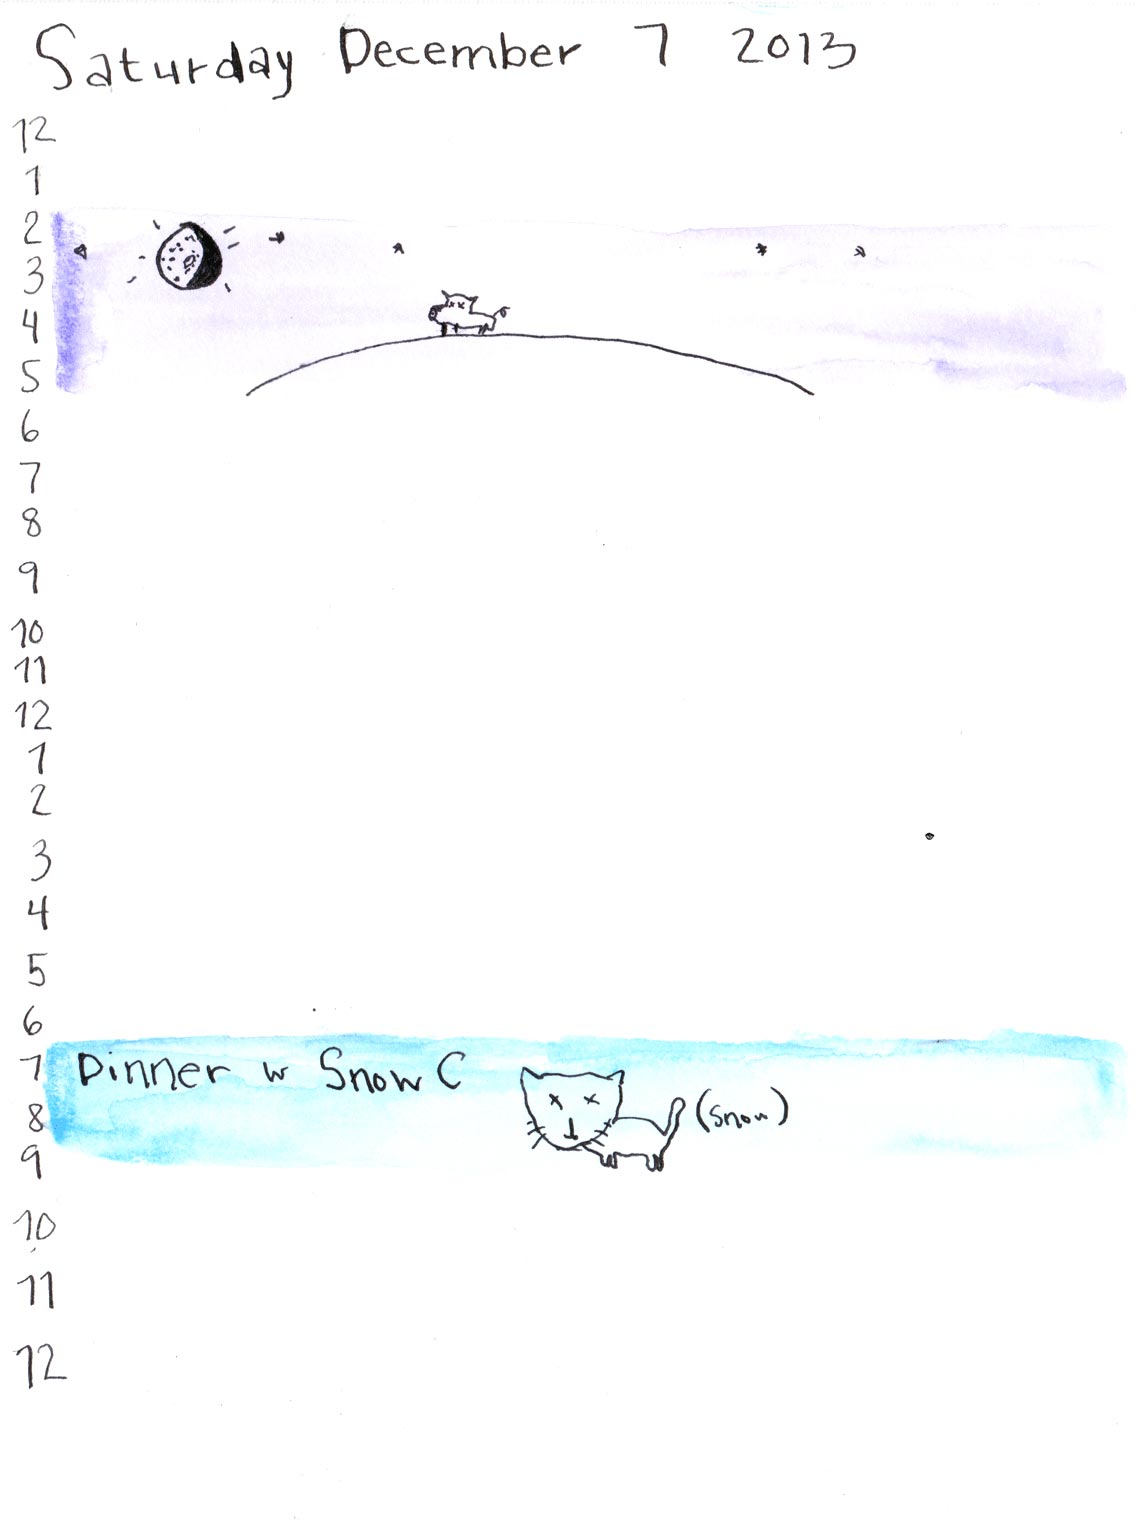 Saturday December 7 2013
12
1
2
3
4
5
6
7
8
9
10
11
12
1
2
3
4
5
6
7 Dinner w Snow C
8 (Snow)
9
10
11
12